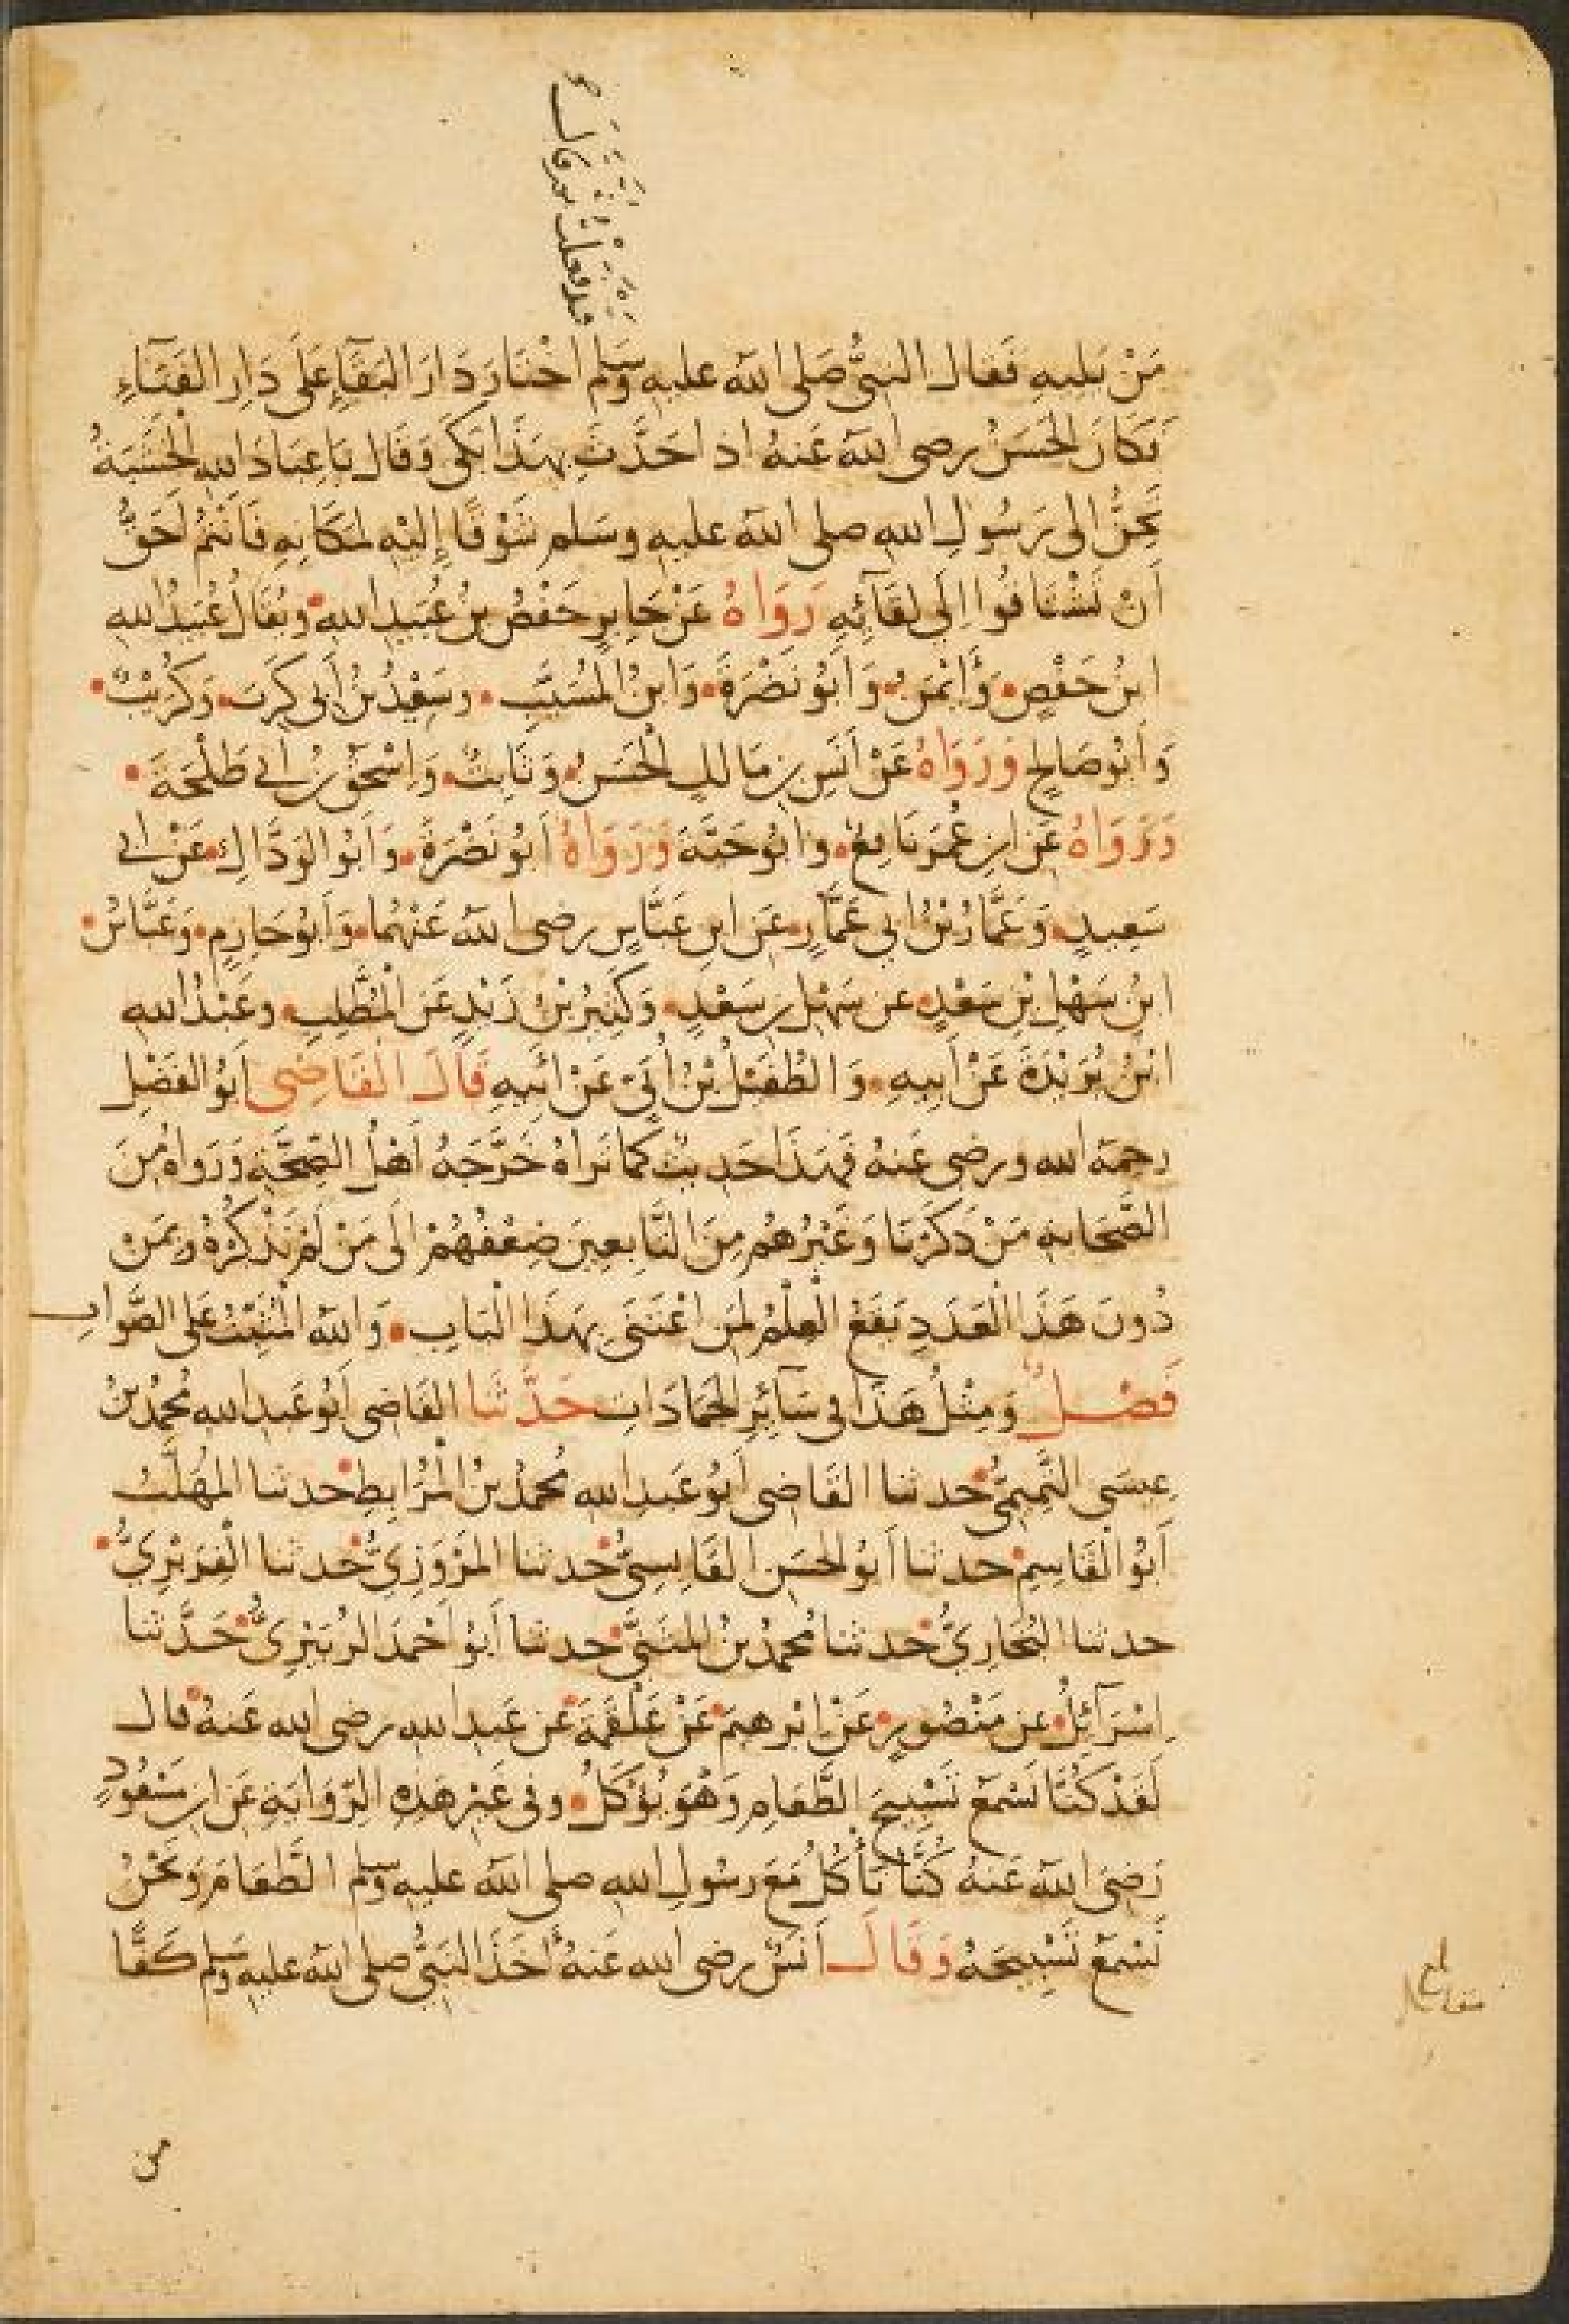 قد فعلت ثم قال
مَنْ يَلِيهِ فَقَالَ النَّبِيُّ صَلى اللهُ عليهِ وَسَلم اخْتَارَ دَارَ البَقَآءِ عَلَى دَارِ الفَنَآءِ
فَكَانَ الحَسَنُ رضى اللهُ عَنهُ اذا حَدَّثَ بهَذَا بَكَى وَقَال يَا عِبَادَ اللهِ الْخَشَبَةُ
تَحِنُّ الى رَسُولِ اللهِ صلى اللهُ عليهِ وسَلم شَوْقًا إِلَيْهِ لمَكَانِهِ فَأَنْتُمْ أَحَقُّ
أَنْ تَشْتَاقُوا إِلَى لِقَآئِهِ رَوَاهُ عَنْ جَابِرٍ حَفْصُ بنُ عُبَيدِ اللهِ وَيُقَالُ عُبَيْدُ اللهِ
ابنُ حَفْصٍ وَأَيْمَنُ وَأَبُو نَضْرَةَ وَابنُ المُسَيَّبِ وسَعِيْدُ بْنُ أَبى كَرِبَ وَكُرَيْبٌ
وَأَبُو صَالِحٍ وَرَوَاهُ عَنْ أَنَسِ بنِ مَالكٍ الْحَسَنُ وَثَابِتٌ وَاِسْحَقُ بنُ أَبى طَلْحَةَ
وَرَوَاهُ عَنِ ابنِ عُمَرَ نَافِعٌ وأَبُو حَيَّةَ وَرَوَاهُ أَبُو نَضْرَةَ وَأَبُو الوَدَّاكِ عَنْ أبى
سَعِيدٍ وَعَمَّارُ بْنُ ابى عَمَّارٍ عَنِ ابنِ عَبَّاسٍ رضى اللهُ عَنْهُمَا وَأَبُو حَازِمٍ وَعَبَّاسُ
ابنُ سَهْلِ بْنِ سَعْدٍ عن سَهْلِ بنِ سَعْدٍ وَكَثِيْرُ بْنُ زَيْدٍ عَنِ الْمُطَّلِبِ وعَبْدُ اللهِ
ابْنُ بُرَيْدَةَ عَنْ أَبِيهِ وَالطُّفَيْلُ بْنُ أُبَىّ عَنْ أَبِيهِ قَالَ القَاضِى أَبُو الفَضْلِ
رحمَهُ الله ورضى عَنهُ فهَذَا حَدِيثٌ كَمَا تَرَاهُ خَرَّجَهُ أَهْلُ الصِّحَّةِ وَرَوَاهُ مِنَ
الصَّحَابَةِ مَنْ ذَكَرْنَا وَغَيْرُهُمْ مِنَ التَّابِعِينَ ضِعْفُهُمْ الَى مَنْ لَمْ نَذْكُرْهُ وبمَنْ
دُونَ هَذَا الْعَدَدِ يَقَعُ الْعِلْمُ لمَنِ اعْتَنَى بهَذَا الْبَابِ وَاللهُ الْمُثَبِّتُ عَلَى الصَّوابِ
فَصْلٌ وَمِثْلُ هَذَا فى سَآئِرِ الجَمَادَاتِ حَدَّثَنا القَاضِى أَبُو عَبدِ اللهِ مُحَمَّدُ بنُ
عِيسَى التَّمِيمِىُّ حدثنا القَاضِى أَبُو عَبدِ اللهِ مُحَمَّدُ بنُ الْمُرَابِطِ حدثنا المُهَلَّبُ
أَبُو الْقَاسِمِ حدثنا أَبُو الحسَنِ القَابِسِىُّ حدثنا المَرْوَزِىُّ حدثنا الْفِرَبْرِيُّ
حدثنا البُخَارِىُّ حدثنا مُحَمَّدُ بنُ المُثَنَّى حدثنا أَبُو أَحْمَدَ الزُّبَيْرِىُّ حَدَّثنا
اِسْرَآئِيلُ عن مَنْصُورٍ عَنْ اِبْرهِيمَ عَنْ عَلْقَمَةَ عَن عَبدِ اللهِ رضى الله عَنهُ قال
لَقَدْ كُنَّا نَسْمَعُ تَسْبِيحَ الطَّعَامِ وَهُوَ يُؤْكَلُ وفى غَيْرِ هَذِهِ الرِّوَايَةِ عَنِ ابنِ مَسْعُودٍ
رَضىَ اللهُ عَنهُ كُنَّا نَأْكُلُ مَعَ رسُولِ اللهِ صلى اللهُ عليهِ وَسلم الطَّعَامَ وَنَحْنُ
نَسْمَعُ تَسْبِيحَهُ وَقَالَ أَنَسٌ رضى الله عَنهُ أَخَذَ النَّبىُّ صلى اللهُ عليهِ وَسلم كَفًّا
من